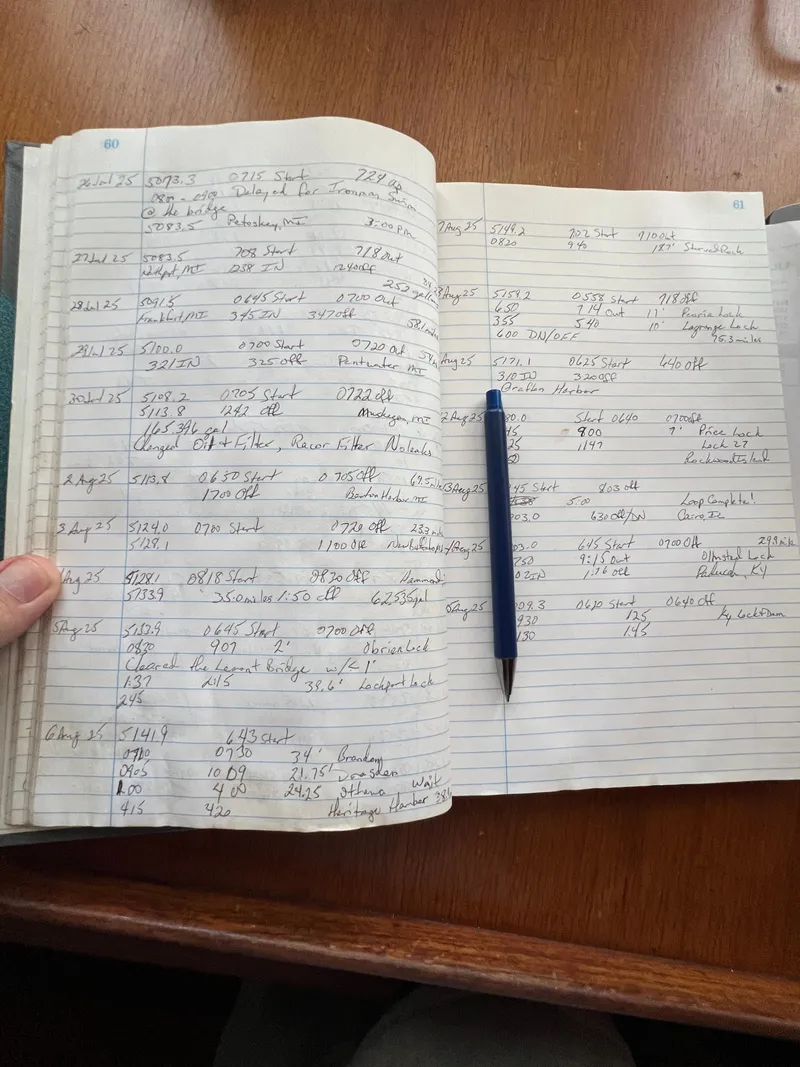 60
26 Jul 25 5073.3 0715 Start 724
0800 - 0900 Delayed for Ironman Swim
@ the bridge
5083.5 Petoskey, MI 3:00 pm
27 Jul 25 5083.5 708 Start 718 Out
MI 1238 IN 1240 off
252
28 Jul 25 5091.5 0645 Start 0700 Out
Frankfort, MI 345 IN 347 off
58
29 Jul 25 5100.0 0700 Start 0720 Out 54
321/IN 325 off Pentwater MI
30 Jul 25 5108.2 0705 Start 0722 off
5113.8 1242 off Muskegon, MI
165.396 gal
Changed Oil + Filter, Racor Filter No leaks
2 Aug 25 5113.8 0630 Start 0705 Off
1700 Off Benton Harbor MI
3 Aug 25 5124.0 0700 Start 0720 Off
5128.1 1100 Off
Aug 25 5128.1 0818 Start 0820 Off Hammond
5133.9 35.0 miles 1:50 off 62.535 gal
5 Aug 25 5133.9 0645 Start 0700 Off
0830 907 2' Obrien Lock
Cleared the Lemont Bridge w/< 1'
1:37 2:15 39.6' Lockport Lock
245
6 Aug 25 5141.9 643 Start
0700 0730 34'
0905 1009 21.75' Dresden
1:00 4:00 24.25 Ottawa Wait
415 420 Heritage Harbor
61
7 Aug 25 5149.2 702 Start 710 Out
0820 940 Starved Rock
Aug 25 5159.2 0558 Start 718 Off
650 714 Out 11' Peoria Lock
355 5:40 10' Lagrange Lock
600 DN/OFF 95.3 miles
Aug 25 5171.1 0625 Start 640 Off
310 IN 320 off
Grafton Harbor
2 Aug 25 80.0 Start 0640 0700 off
45 800 7' Price Lock
25 1147 Lock 27
50
13 Aug 25 45 Start 803 off
5:00 Loop Complete!
03.0 630 Off/DN Cairo, IL
Aug 25 03.0 645 Start 0700 Off 29.3
750 9:15 Out Olmsted Lock
02 IN 1:16 Off Paducah, KY
Aug 25 09.3 0620 Start 0640 Off
930 125 Ky Lock + Dam
130 1:45